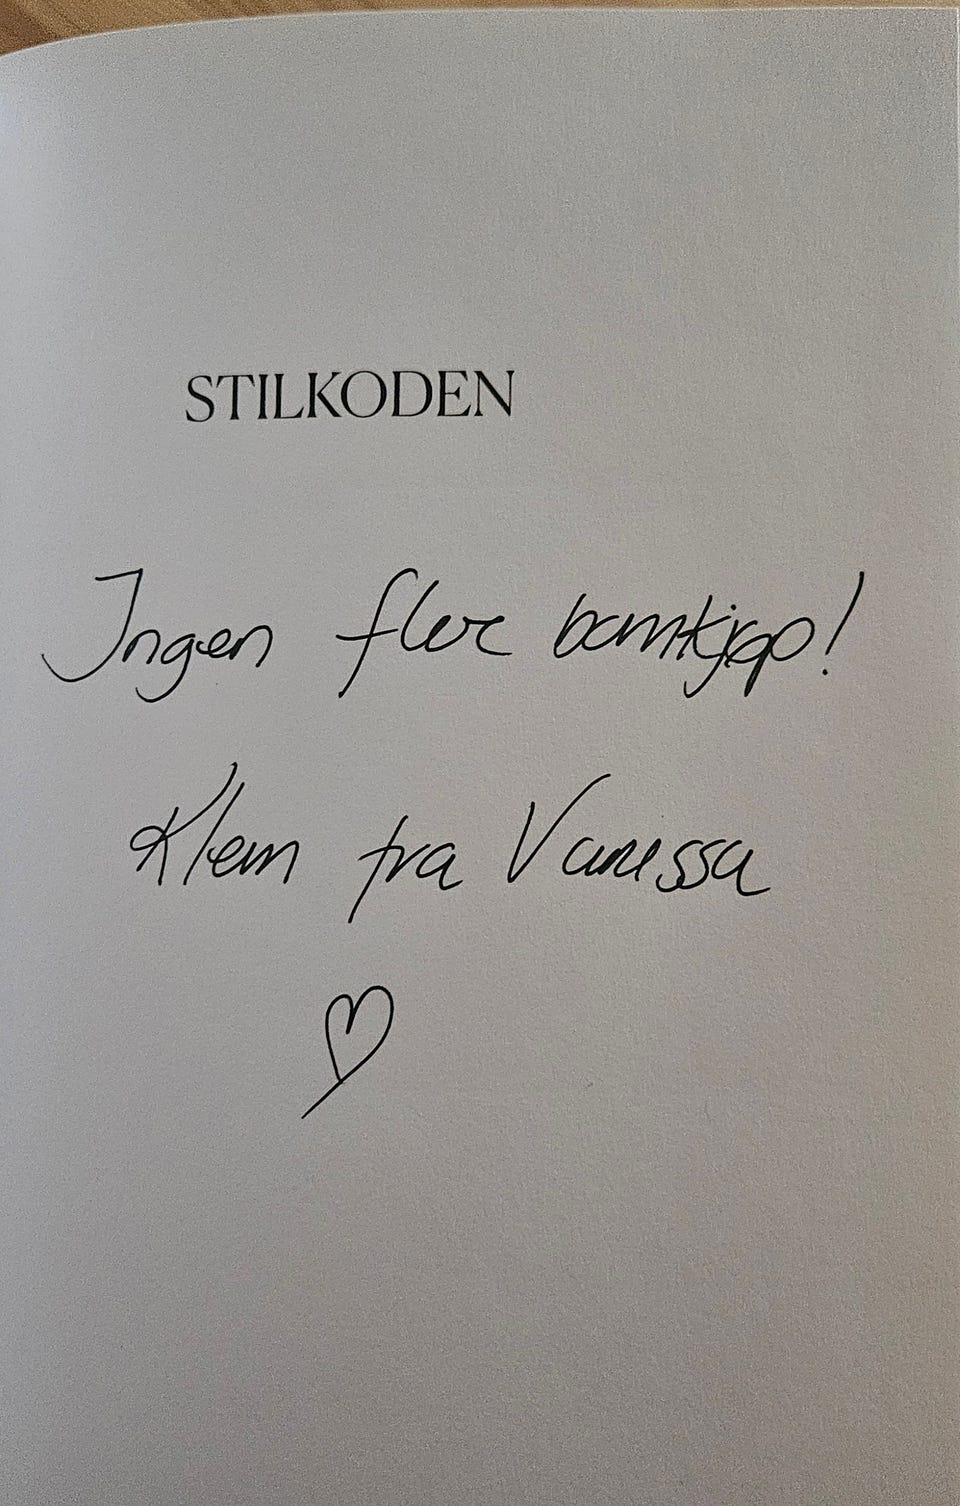 STILKODEN
Ingen flere bomkjøp!
Klem fra Vanessa